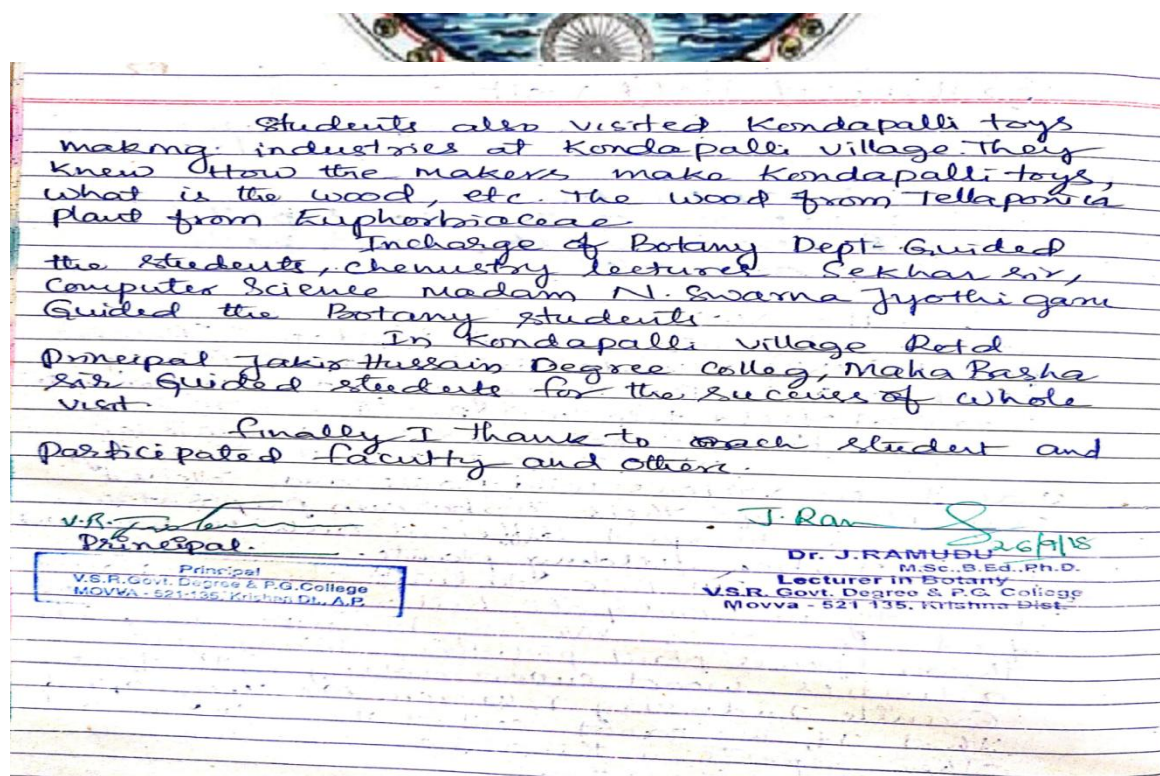 Students also visited Kondapalli toys
making industries at Kondapalli village. They
knew How the makers make Kondapalli toys,
what is the wood, etc. The wood from Tellaponica
plant from Euphorbiaceae.
Incharge of Botany Dept- Guided
the students, chemustry lecturer Sekhar sir,
Computer Science madam N. Swarna Jyothi garu
Guided the Botany students.
In Kondapalli village Retd
Principal Jakir Hussain Degree Colleg, Maha Basha
sir Guided students for the success of whole
visit.
finally I thank to each student and
participated faculty and others.
V.R.
J. Ram
26/9/18
Principal.
Principal
V.S.R.Govt. Degree & P.G.College
MOVVA - 521-135, Krishna Dt., A.P.
Dr. J.RAMUDU
M.Sc.,B.Ed.,Ph.D.
Lecturer in Botany
V.S.R. Govt. Degree & P.G. College
Movva - 521 135, Krishna Dist.